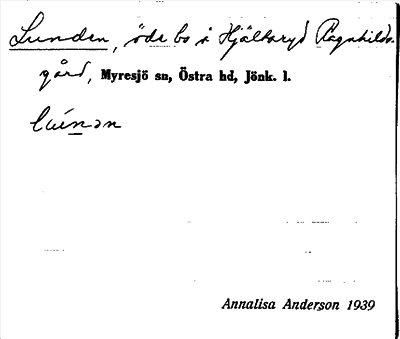 Lunden, öde bo å Hjältaryd Ragnhilds-
gård, Myresjö sn, Östra hd, Jönk. l.
Annalisa Anderson 1939